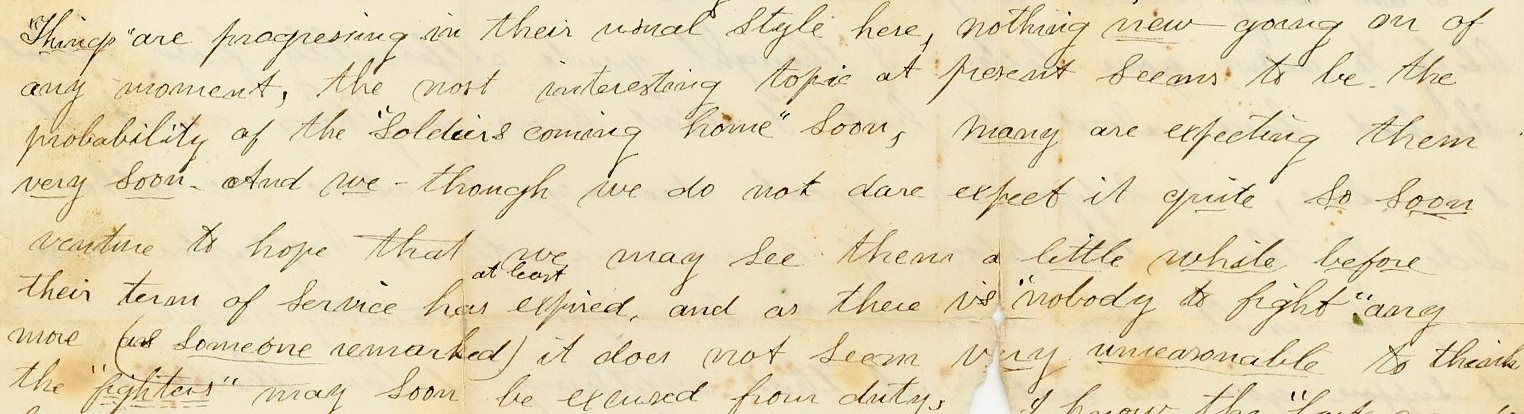 "Things" are progressing in their usual style here, nothing new going on of
any moment, the most interesting topic at present seems to be the
probability of the "Soldiers coming home" soon, many are expecting them
very soon - And we - though we do not dare expect it quite so soon
venture to hope that we may see them a little while before
at least
their term of service has expired, and as there is "nobody to fight" any
more (as someone remarked) it does not seem very unreasonable to think
the "fighters" may soon be excused from duty. I know the